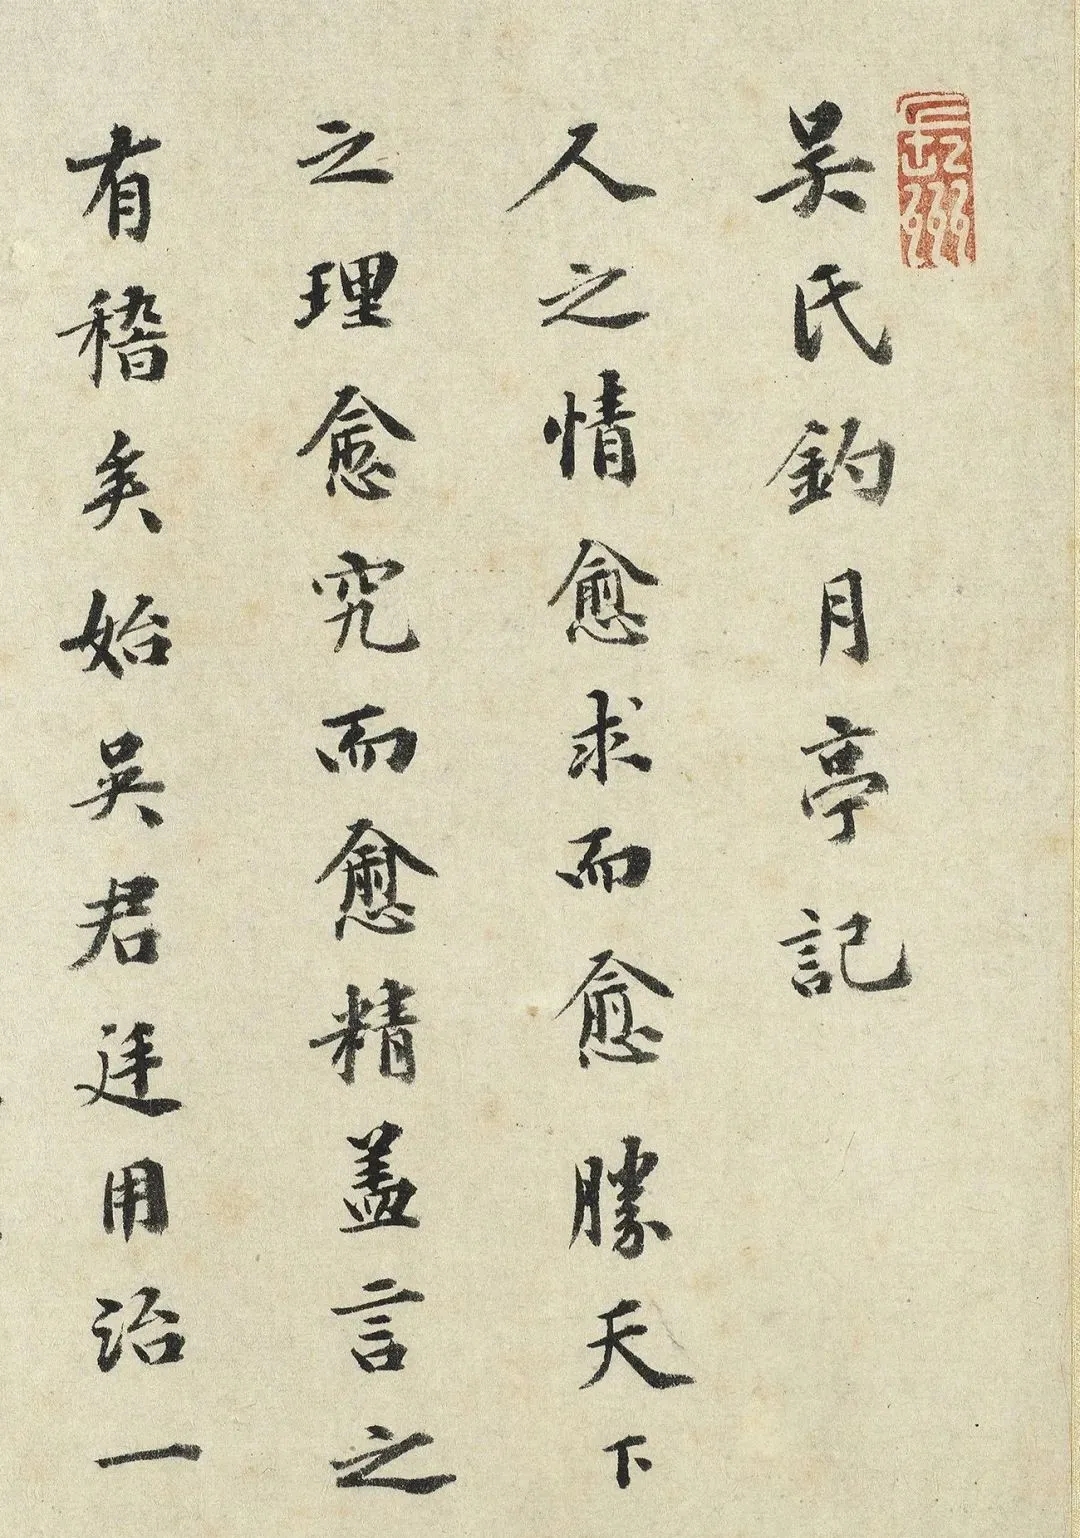 長洲
吴氏釣月亭記
人之情愈求而愈勝天下
之理愈究而愈精盖言之
有稽矣始吴君廷用治一